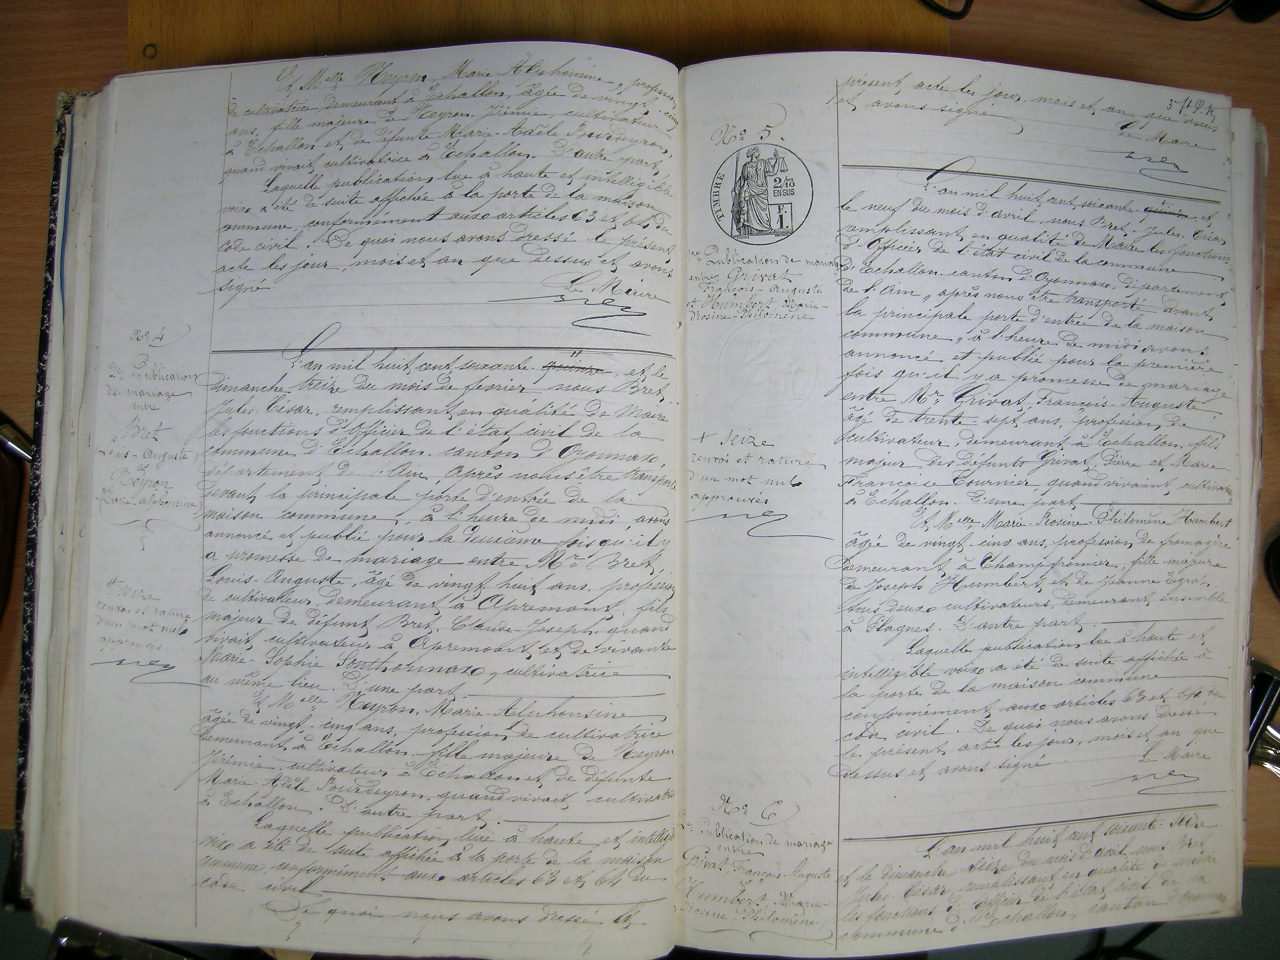 Et Melle Neyron, Marie Alphonsine, profession
de cultivatrice demeurant à Echallon, âgée de vingt-cinq
ans, fille majeure de Neyron Jérémie, cultivateur
à Echallon et de défunte Marie-Adèle Pourdeyron,
quand vivait cultivatrice à Echallon. D'autre part,
Laquelle publication lue à haute et intelligible
voix a été de suite affichée à la porte de la maison
commune, conformément aux articles 63 et 64 du
code civil. De quoi nous avons dressé le présent
acte les jour, mois et an que dessus et avons
signé
Le Maire
No 4
2e Publication
de mariage
entre
Bret
Louis-Auguste,
et
Neyron
Marie-Alphonsine
+ seize
renvoi et rature
d'un mot nul
approuvés
L'an mil huit cent soixante quinze et le
dimanche treize du mois de février nous Bret,
Jules César, remplissant en qualité de Maire
les fonctions d'Officier de l'état civil de la
commune d'Echallon, canton d'Oyonnax,
département de l'Ain, après nous être transporté
devant la principale porte d'entrée de la
maison commune, à l'heure de midi, avons
annoncé et publié pour la deuxième fois qu'il y
a promesse de mariage entre Mr Bret,
Louis-Auguste, âgé de vingt huit ans, profession
de cultivateur, demeurant à Apremont, fils
majeur de défunt Bret, Claude-Joseph quand
vivait, cultivateur à Apremont, et de vivante
Marie-Sophie cultivatrice
au même lieu. D'une part.
Et Melle Neyron, Marie-Alphonsine
âgée de vingt-cinq ans, profession de cultivatrice
demeurant à Echallon, fille majeure de Neyron
Jérémie, cultivateur à Echallon et de défunte
Marie Adèle Pourdeyron, quand vivait, cultivatrice
à Echallon. D'autre part.
Laquelle publication, lue à haute et intelligible
voix a été de suite affichée à la porte de la maison
commune, conformément aux articles 63 et 64 du
code civil
De quoi nous avons dressé le
présent acte les jour, mois et an que dessus
et avons signé
Le Maire
No 5.
TIMBRE
2/10
EN SUS
1 F.
1re Publication de mariage
entre Grivat
François-Auguste
et Humbert Marie-
Rosine-Philomène
+ Seize
renvoi et rature
d'un mot nul
approuvés
L'an mil huit cent soixante quinze et
le neuf du mois d'avril nous Bret, Jules César
remplissant, en qualité de Maire les fonctions
d'Officier de l'état civil de la commune
d'Echallon canton d'Oyonnax, département
de l'Ain, après nous être transporté devant
la principale porte d'entrée de la maison
commune, à l'heure de midi avons
annoncé et publié pour la première
fois qu'il y a promesse de mariage
entre Mr Grivat, François-Auguste,
âgé de trente-sept ans, profession de
cultivateur, demeurant à Echallon, fils
majeur des défunts Grivat, Pierre et Marie
Françoise Tournier quand vivaient, cultivateurs
à Echallon. D'une part
Et Melle Marie-Rosine-Philomène Humbert
âgée de vingt-cinq ans, profession de fromagère
demeurant à Champfromier, fille majeure
de Joseph Humbert, et de Jeanne
tous deux cultivateurs, demeurant ensemble
à Plagnes. D'autre part.
Laquelle publication lue à haute et
intelligible voix a été de suite affichée à
la porte de la maison commune
conformément aux articles 63 et 64 du
code civil. De quoi nous avons dressé
le présent acte les jour, mois et an que
dessus et avons signé
Le Maire
No 6
2e Publication de mariage
entre
Grivat François-Auguste
et
Humbert, Marie-
Rosine-Philomène
L'an mil huit cent soixante-seize
et le dimanche seize du mois d'avril nous Bret,
Jules César, remplissant en qualité de maire
les fonctions d'Officier de l'état civil de la
commune d'Echallon, canton d'Oyonnax